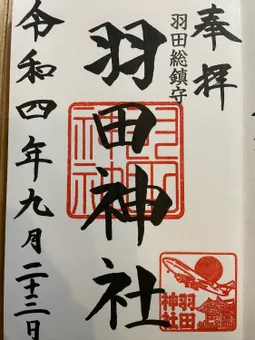 奉拝
羽田総鎮守
羽田神社
令和四年九月二十三日
羽田神社
羽田
神社